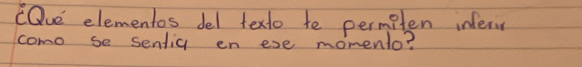 ¿Qué elementos del texto te permiten inferir
como se sentia en ese momento?